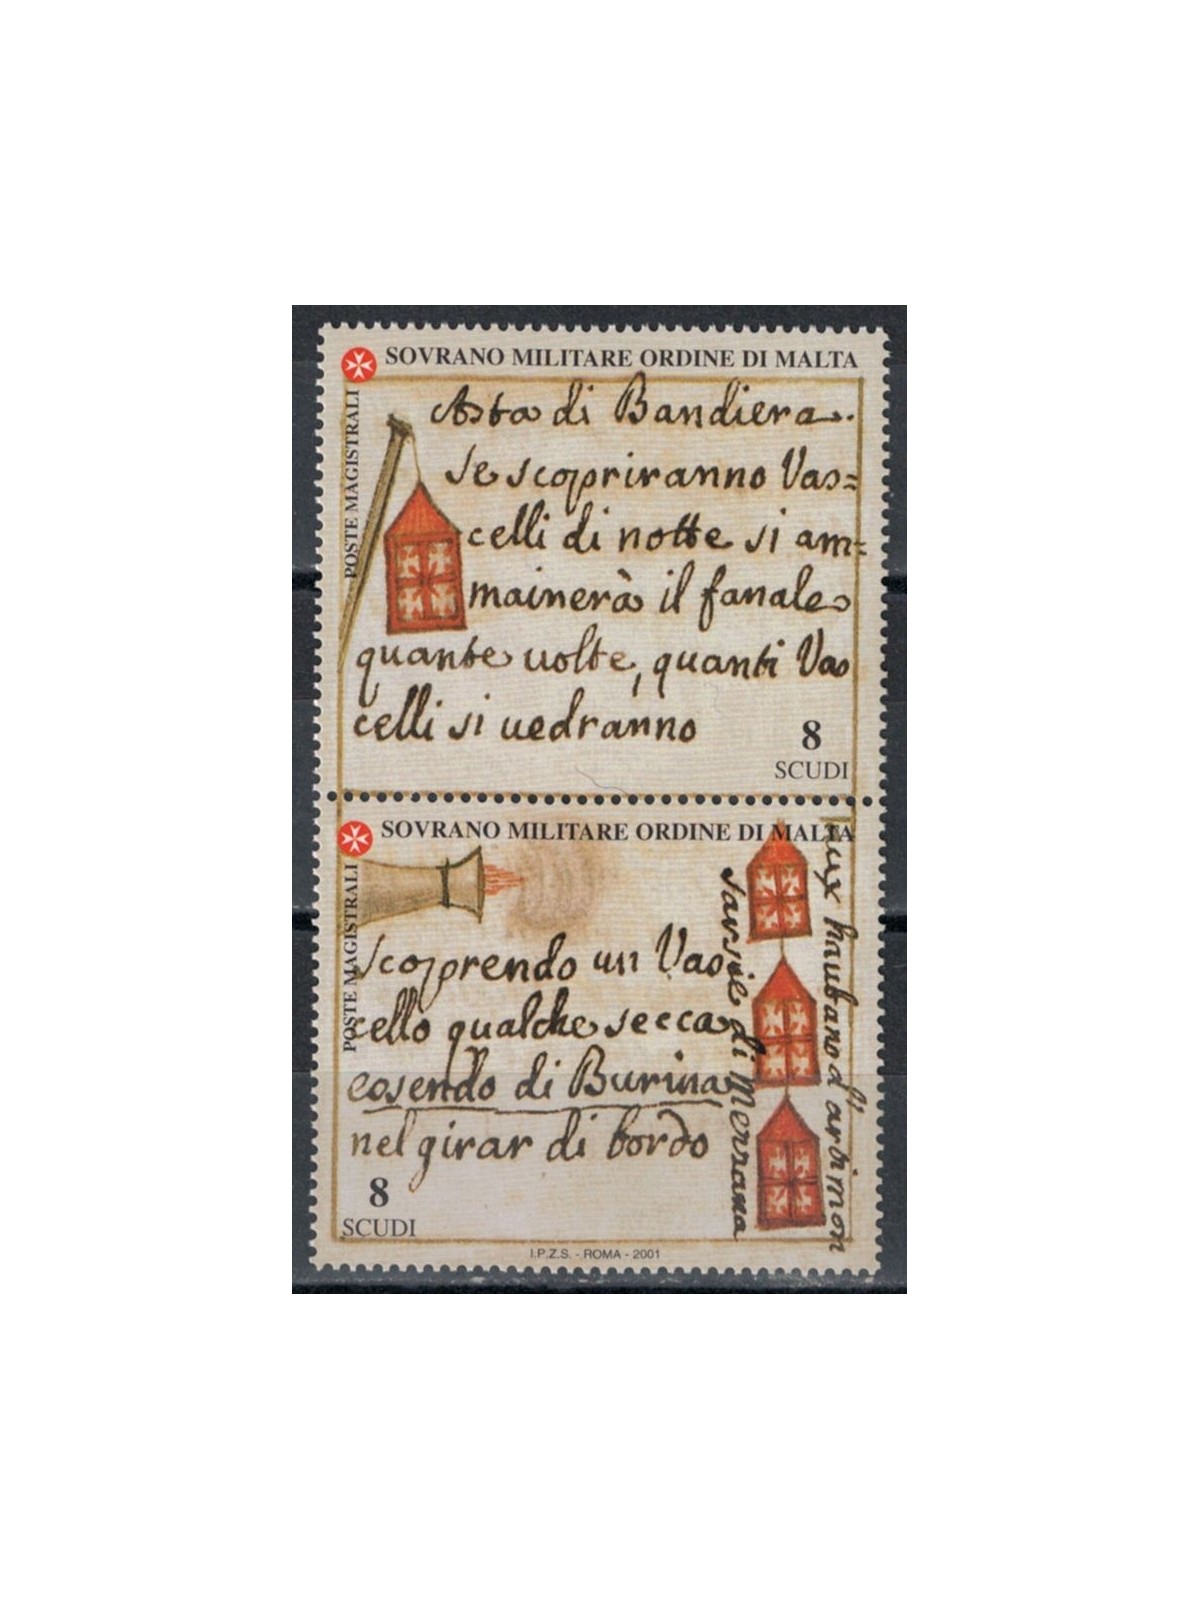 SOVRANO MILITARE ORDINE DI MALTA
POSTE MAGISTRALI
Asta di Bandiera.
Se scopriranno Vas=
celli di notte si am=
mainerà il fanale
quante volte, quanti Vas
celli si vedranno
8
SCUDI
SOVRANO MILITARE ORDINE DI MALTA
POSTE MAGISTRALI
Scoprendo un Vas
cello qualche secca
eosendo di Burina
nel girar di bordo
8
SCUDI
sarsie di Merrana
haubans d'artimon
I.P.Z.S. - ROMA - 2001